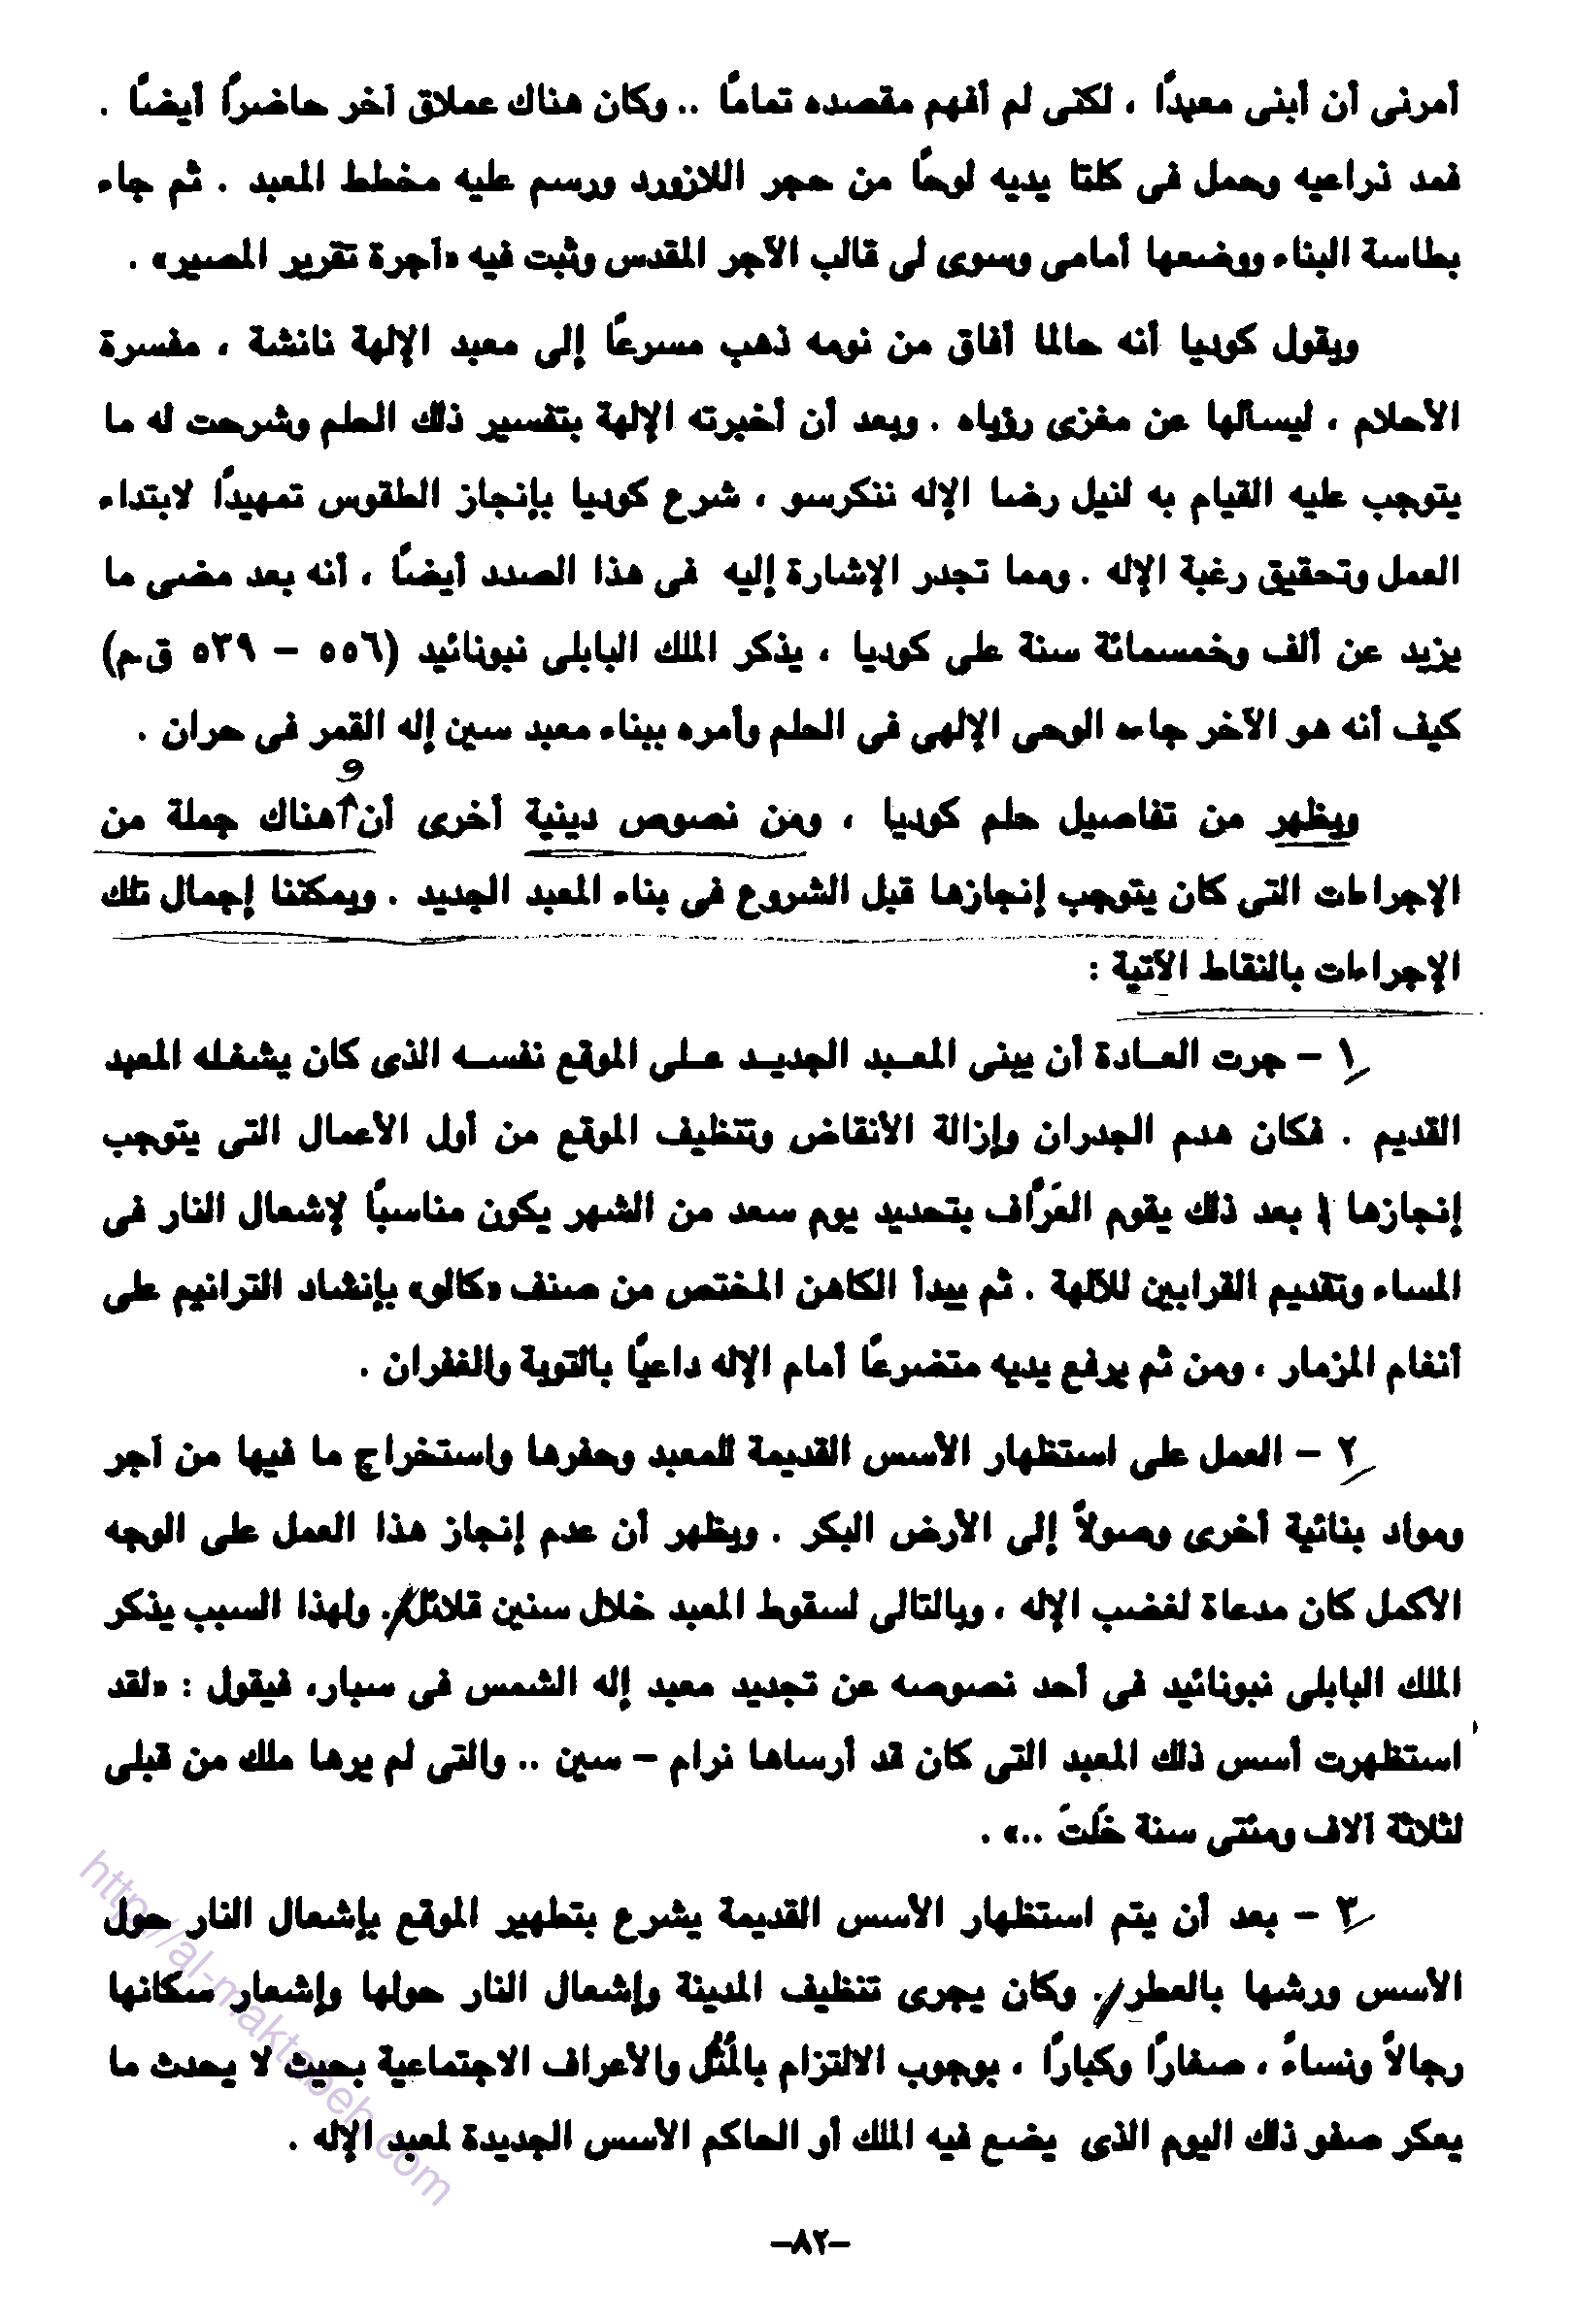 أمرنى أن أبنى معبدًا ، لكنى لم أفهم مقصده تمامًا .. وكان هناك عملاق آخر حاضرًا أيضًا .
فمد ذراعيه وحمل فى كلتا يديه لوحًا من حجر اللازورد ورسم عليه مخطط المعبد . ثم جاء
بطاسة البناء ووضعها أمامى وسوى لى قالب الآجر المقدس وثبت فيه «آجرة تقرير المصير» .
ويقول كوديا أنه حالما أفاق من نومه ذهب مسرعًا إلى معبد الإلهة نانشة ، مفسرة
الأحلام ، ليسألها عن مغزى رؤياه . وبعد أن أخبرته الإلهة بتفسير ذلك الحلم وشرحت له ما
يتوجب عليه القيام به لنيل رضا الإله ننكرسو ، شرع كوديا بإنجاز الطقوس تمهيدًا لابتداء
العمل وتحقيق رغبة الإله . ومما تجدر الإشارة إليه فى هذا الصدد أيضًا ، أنه بعد مضى ما
يزيد عن ألف وخمسمائة سنة على كوديا ، يذكر الملك البابلى نبونائيد (٥٥٦ – ٥٣٩ ق.م)
كيف أنه هو الآخر جاءه الوحى الإلهى فى الحلم وأمره ببناء معبد سين إله القمر فى حران .
و
ويظهر من تفاصيل حلم كوديا ، ومن نصوص دينية أخرى أن هناك جملة من
الإجراءات التى كان يتوجب إنجازها قبل الشروع فى بناء المعبد الجديد . ويمكننا إجمال تلك
الإجراءات بالنقاط الآتية :
١ – جرت العــادة أن يبنى المعــبد الجديــد عــلى الموقع نفســه الذى كان يشغـله المعبد
القديم . فكان هدم الجدران وإزالة الأنقاض وتنظيف الموقع من أول الأعمال التى يتوجب
إنجازها . بعد ذلك يقوم العَرّاف بتحديد يوم سعد من الشهر يكون مناسبًا لإشعال النار فى
المساء وتقديم القرابين للآلهة . ثم يبدأ الكاهن المختص من صنف «كالو» بإنشاد الترانيم على
أنغام المزمار ، ومن ثم يرفع يديه متضرعًا أمام الإله داعيًا بالتوبة والغفران .
٢ – العمل على استظهار الأسس القديمة للمعبد وحفرها واستخراج ما فيها من آجر
ومواد بنائية أخرى وصولاً إلى الأرض البكر . ويظهر أن عدم إنجاز هذا العمل على الوجه
الأكمل كان مدعاة لغضب الإله ، وبالتالى لسقوط المعبد خلال سنين قلائل . ولهذا السبب يذكر
الملك البابلى نبونائيد فى أحد نصوصه عن تجديد معبد إله الشمس فى سبار، فيقول : «لقد
استظهرت أسس ذلك المعبد التى كان قد أرساها نرام – سين .. والتى لم يرها ملك من قبلى
لثلاثة آلاف ومئتى سنة خَلَت ..» .
٣ – بعد أن يتم استظهار الأسس القديمة يشرع بتطهير الموقع بإشعال النار حول
الأسس ورشها بالعطر . وكان يجرى تنظيف المدينة وإشعال النار حولها وإشعار سكانها
رجالاً ونساءً ، صغارًا وكبارًا ، بوجوب الالتزام بالمُثُل والأعراف الاجتماعية بحيث لا يحدث ما
يعكر صفو ذلك اليوم الذى يضع فيه الملك أو الحاكم الأسس الجديدة لمعبد الإله .
–٨٢–
http://al-maktabeh.com